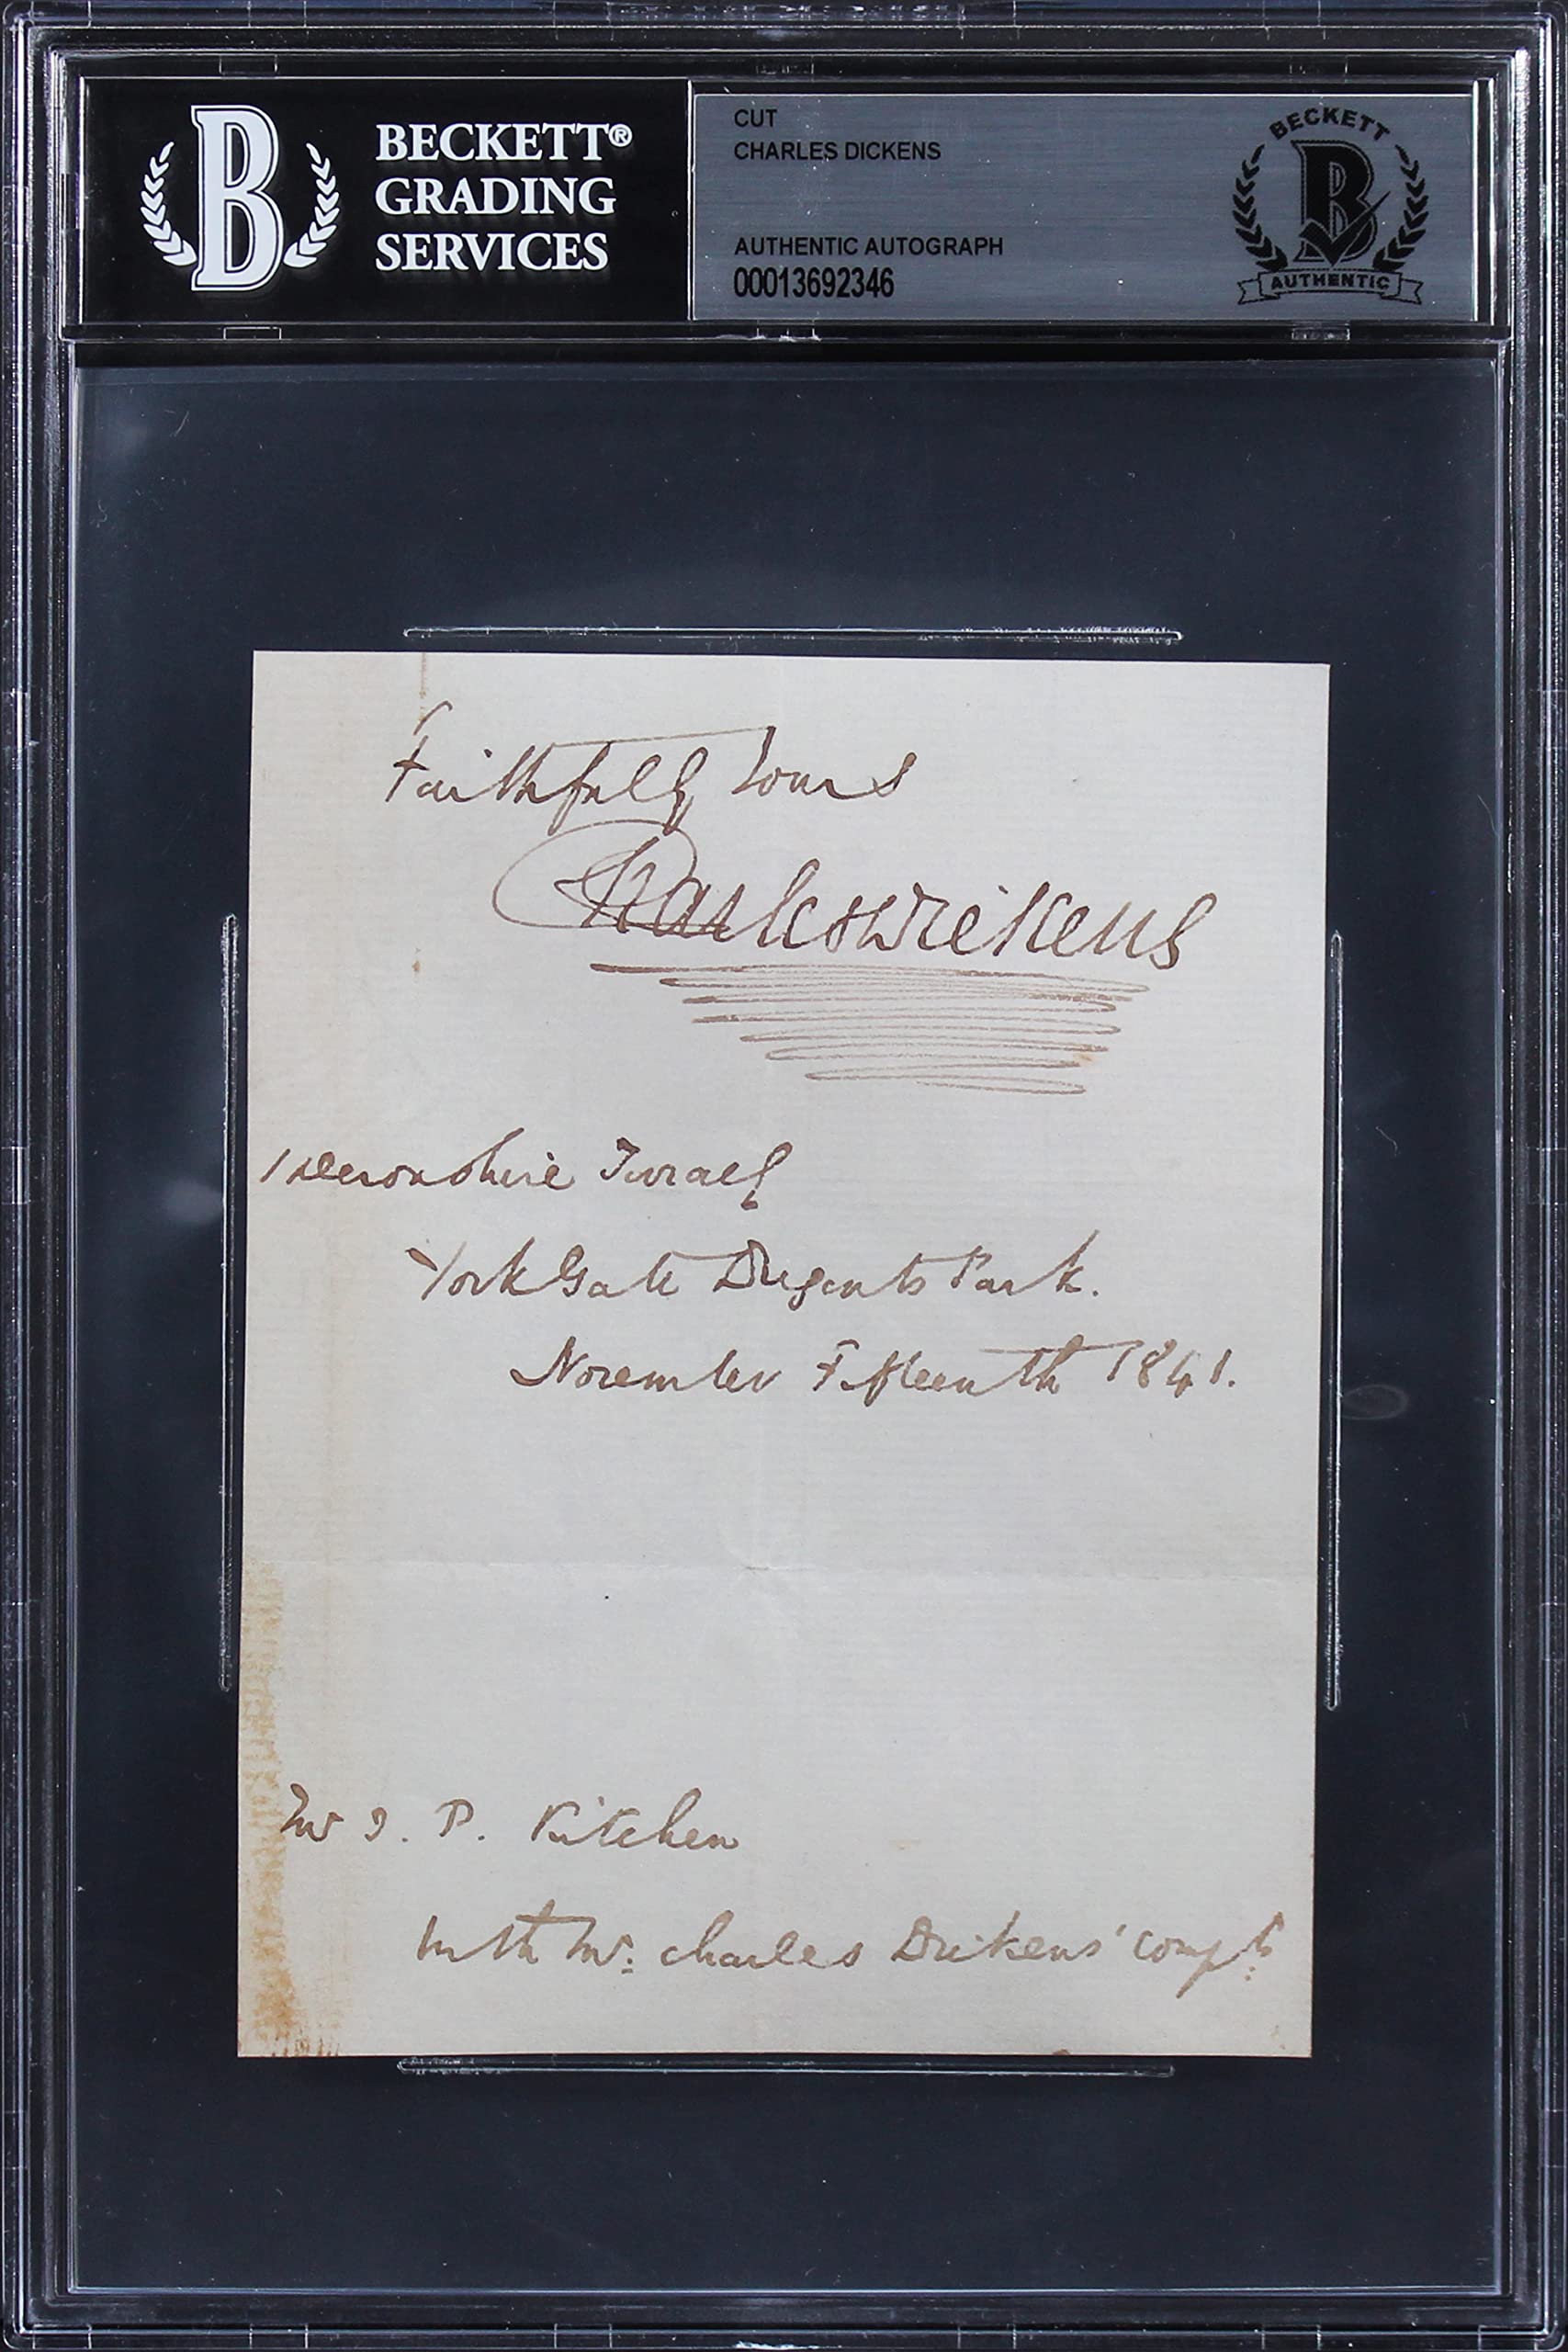 BECKETT®
GRADING
SERVICES
CUT
CHARLES DICKENS
AUTHENTIC AUTOGRAPH
00013692346
BECKETT
B
AUTHENTIC
B
Faithfully Yours
Charles Dickens
1 Devonshire Terrace
York Gate Regents Park.
November Fifteenth 1841.
Mr J. P. Kitchen
With Mr. Charles Dickens' compts